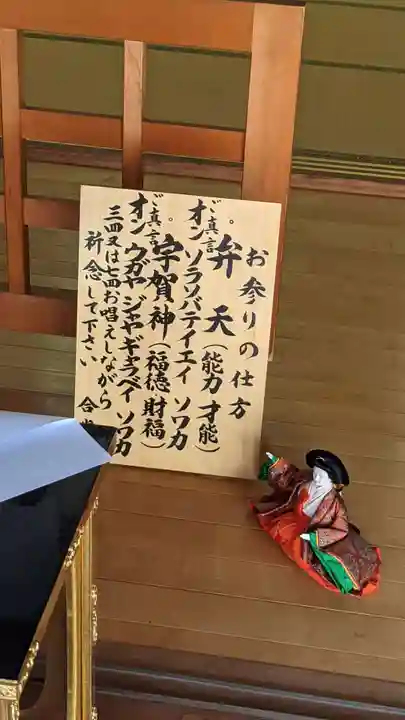 お参りの仕方
弁天（能力才能）
ご真言
オン ソラソバテイエイ ソワカ
宇賀神（福徳財福）
ご真言
オン ウガヤ ジャヤギャラベイ ソワカ
三回又は七回お唱えしながら
祈念して下さい